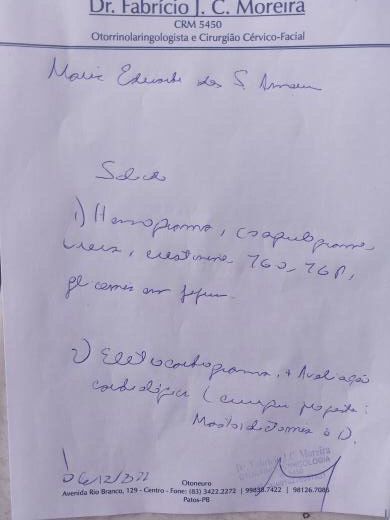 Dr. Fabrício J. C. Moreira
CRM 5450
Otorrinolaringologista e Cirurgião Cérvico-Facial
Maria Eduarda dos S.
Solicito
1) Hemograma, coagulograma,
ureia, creatinina, TGO, TGP,
glicemia em jejum.
2) Eletrocardiograma + Avaliação
cardiológica (cirurgia proposta:
Mastoidectomia à D).
Dr. Fabrício J. C. Moreira
06/12/2022
Otoneuro
Avenida Rio Branco, 129 - Centro - Fone: (83) 3422.2272 | 99838.7422 | 98126.7086
Patos-PB